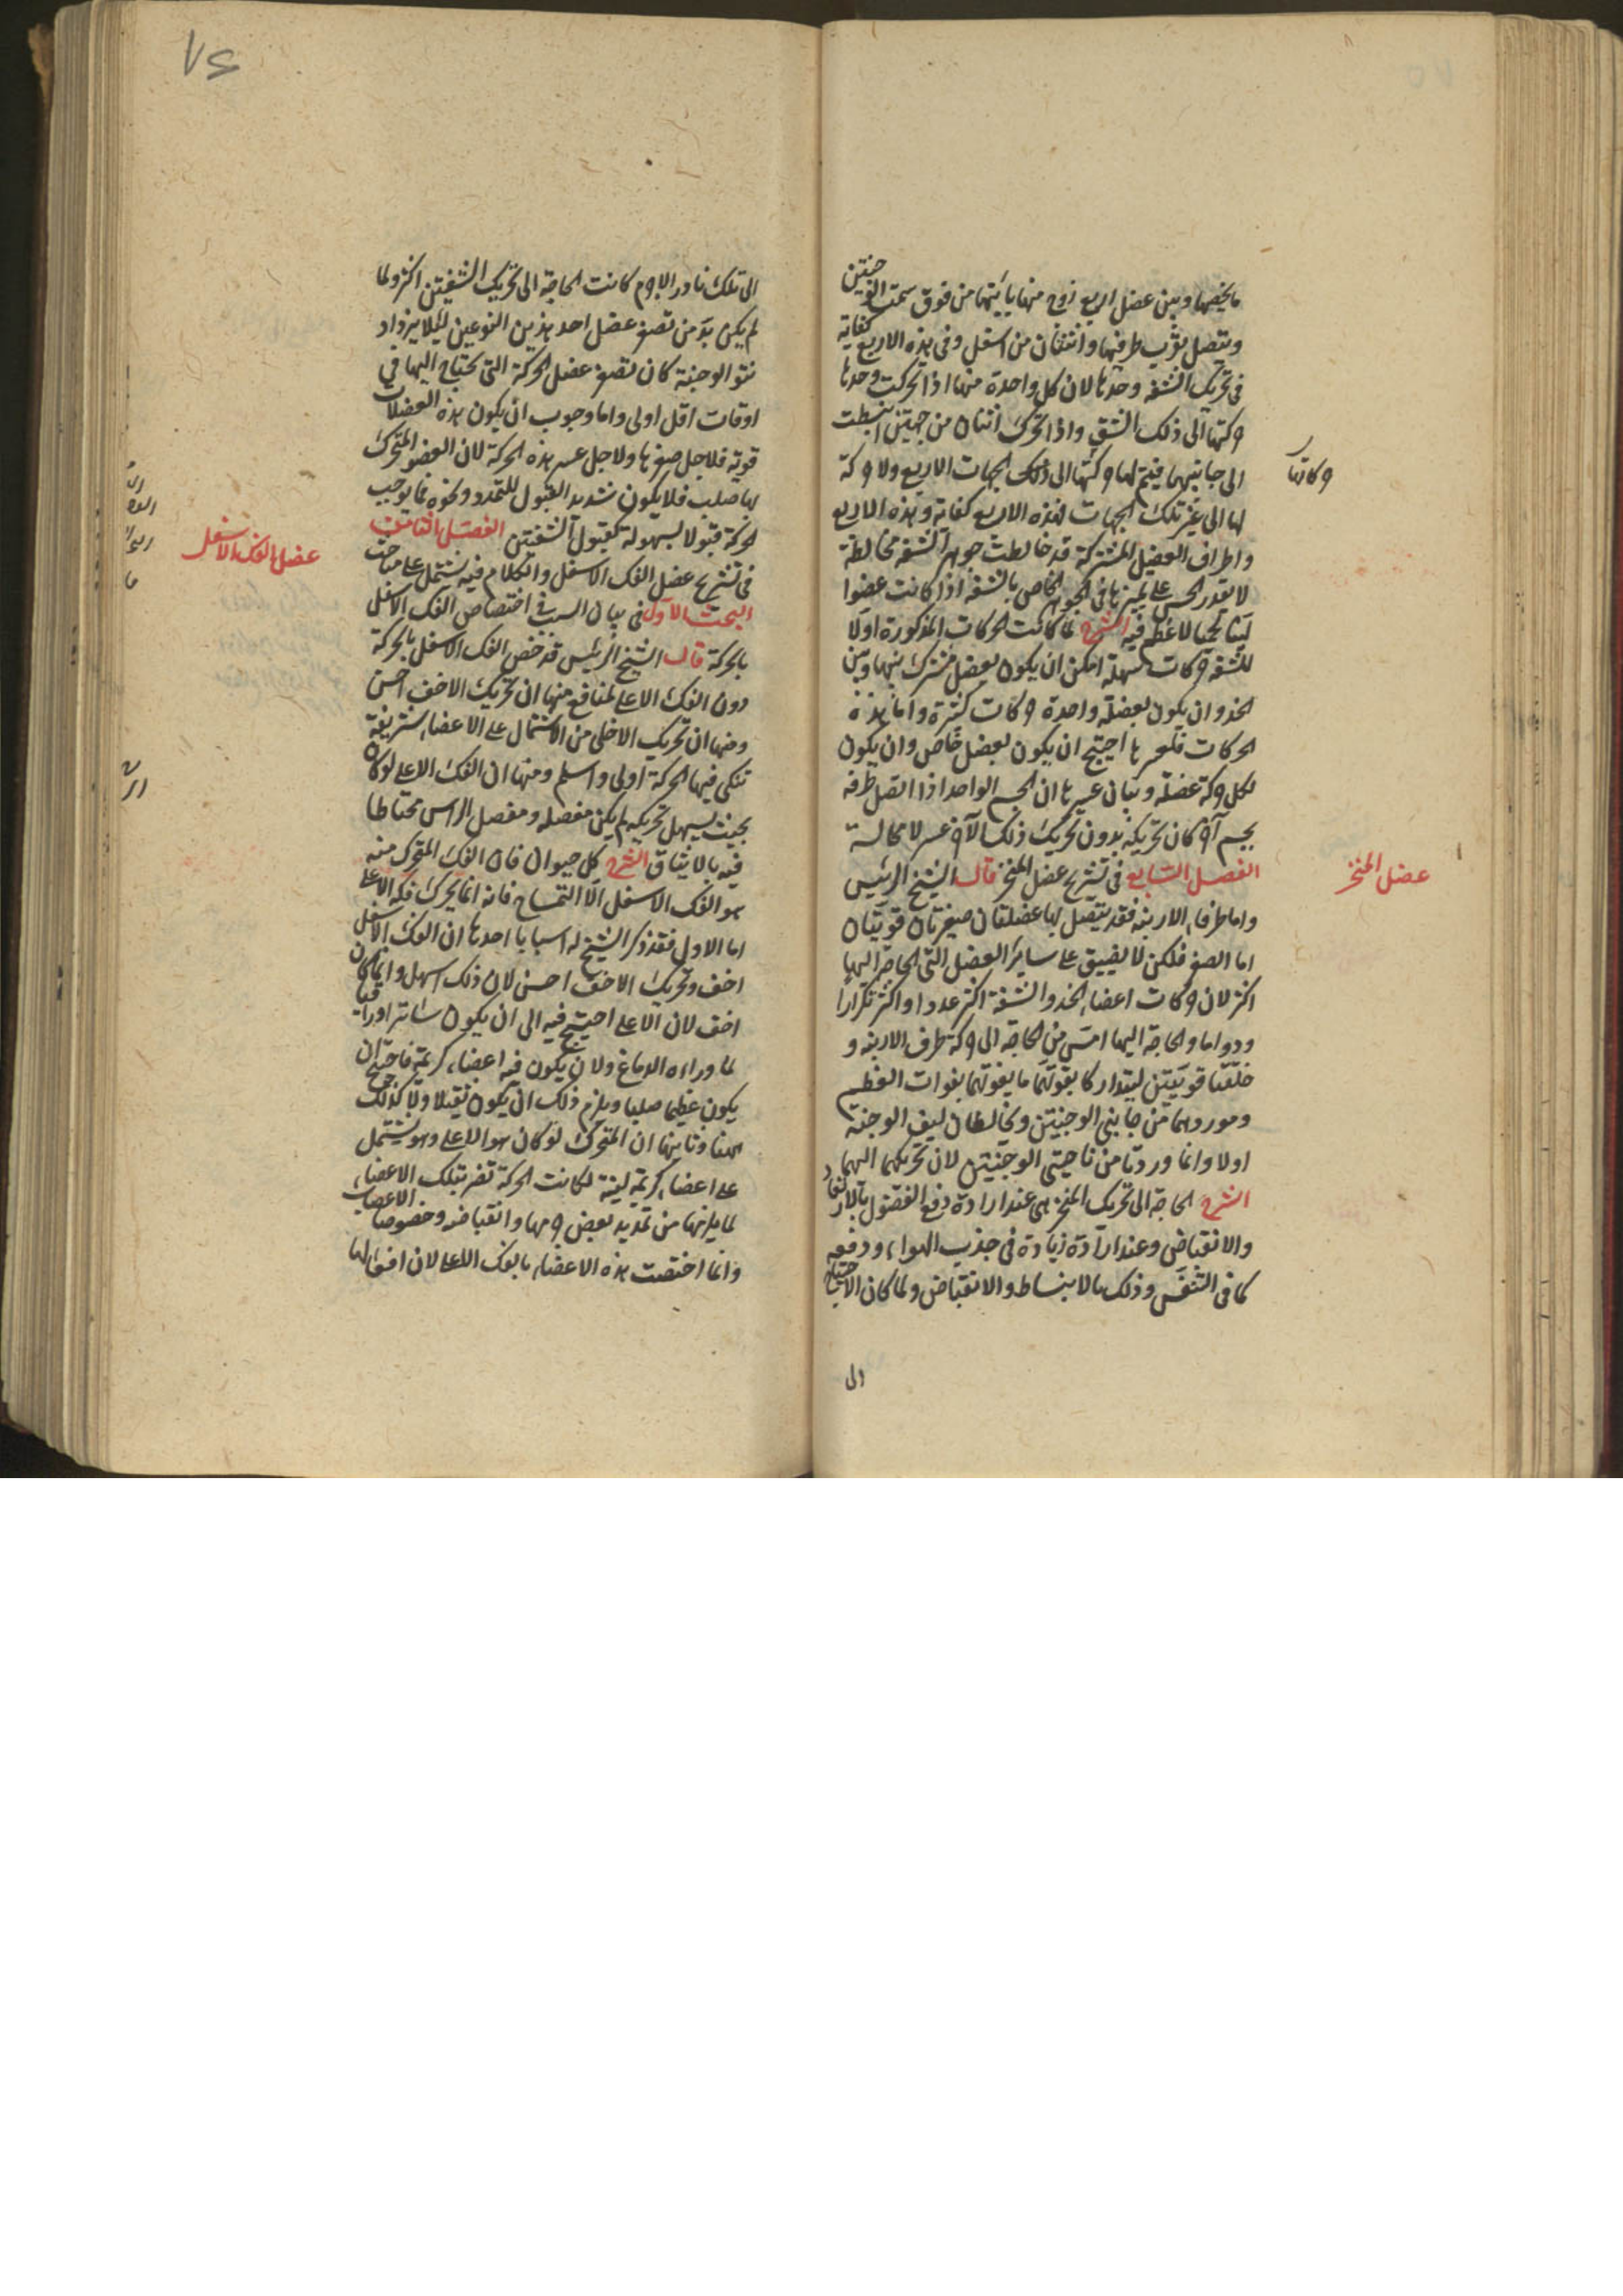 ما يخصها وبين عضل اربع زوج منها يأتيهما من فوق سمت الوجنتين
ويتصل بقرب طرفيها واثنتان من اسفل وفى هذه الاربع كفاية
فى تحريك الشفه وحدها لان كل واحدة منها اذا تحركت وحدها
حركتها الى ذلك الشق واذا تحرك اثنتان من جهتين انبسطت
الى جانبيهما فيتم لها حركتها الى تلك الجهات الاربع ولا حركة
لها الى غير تلك الجهات فهذه الاربع كفاية وهذه الاربع
واطراف العضل المشتركة قد خالطت جوهر الشفه مخالطة
لا يقدر الحس على تميزها فى الجوهر الخاص بالشفه اذا كانت عضوا
لينا لحميا لا عظم فيه الشرح لما كانت الحركات المذكورة اولا
للشفه حركات سهلة امكن ان يكون بعضل مشترك بينها وبين
الخد وان يكون بعضلة واحدة حركات كثيرة واما هذه
الحركات فلعسرها احتيج ان يكون بعضل خاص وان يكون
لكل حركة عضلة وبيان عسرها ان الجسم الواحد اذا اتصل طرفه
بجسم آخر كان تحريكه بدون تحريك ذلك الآخر عسر لا محالة
الفصل السابع فى تشريح عضل المنخر قال الشيخ الرئيس
واما طرفا الارنبه فقد يتصل بها عضلتان صغيرتان قويتان
اما الصغر فلكن لا يضيق على ساير العضل التى الحاجة اليها
اكثر لان حركات اعضاء الخد والشفة اكثر عددا واكثر تكرارا
ودواما والحاجة اليها امس من الحاجة الى حركة طرف الارنبه و
خلقتا قويتين ليتداركا بقوتهما ما يفوتهما بفوات العظم
وموردهما من جانبى الوجنتين ويخالطان ليف الوجنة
اولا وانما وردتا من ناحيتى الوجنتين لان تحريكهما اليهما
الشرح الحاجة الى تحريك المنخر هى عند ارادة دفع الفضول
والانقباض وعند ارادة زيادة فى جذب الهواء ودفعه
كما فى التنفس وذلك بالانبساط والانقباض ولما كان الاحتياج
الى
حركاتها
عضل المنخر
٧٤
الى تلك نادرا لاجرم كانت الحاجة الى تحريك الشفتين اكثر ولما
لم يكن بد من تصغر عضل احد هذين النوعين ليلا يزداد
نتو الوجنة كان تصغر عضل الحركة التى يحتاج اليها فى
اوقات اقل اولى واما وجوب ان يكون هذه العضلات
قوية فلاجل صغرها ولاجل عسر هذه الحركة لان العضو المتحرك
بها صلب فلا يكون شديد القبول للتمدد ونحوه مما يوجب
الحركة قبولا بسهولة كقبول الشفتين الفصل الثامن
فى تشريح عضل الفك الاسفل والكلام فيه يشتمل على مباحث
البحث الاول فى بيان السبب فى اختصاص الفك الاسفل
بالحركة قال الشيخ الرئيس قد خص الفك الاسفل بالحركة
دون الفك الاعلى لمنافع منها ان تحريك الاخف احسن
ومنها ان تحريك الاخلى من الاشتمال على الاعضاء شريفة
تنكى فيها الحركة اولى واسلم ومنها ان الفك الاعلى لو كان
بحيث يسهل تحريكه لم يكن مفصله ومفصل الراس محتاطا
فيه بالايثاق الشرح كل حيوان فان الفك المتحرك منه
هو الفك الاسفل الا التمساح فانه انما يحرك فكه الاعلى
اما الاول فقد ذكر الشيخ له اسبابا احدها ان الفك الاسفل
اخف وتحريك الاخف احسن لان ذلك اسهل وانما كان
اخف لان الاعلى احتيج فيه الى ان يكون ساترا وواقيا
لما وراءه الدماغ ولان يكون فيه اعضاء كريمة فاحتيج ان
يكون عظيما صلبا ويلزم ذلك ان يكون ثقيلا ولا كذلك
ههنا وثانيها ان المتحرك لو كان هو الاعلى وهو يشتمل
على اعضاء كريمة لينة لكانت الحركة تضر بتلك الاعضاء
لما يلزمها من تمديد بعض جرمها وانقباضه وخصوصا الاعصاب
وانما اختصت هذه الاعضاء بالفك الاعلى لان افعالها
عضل الفك الاسفل